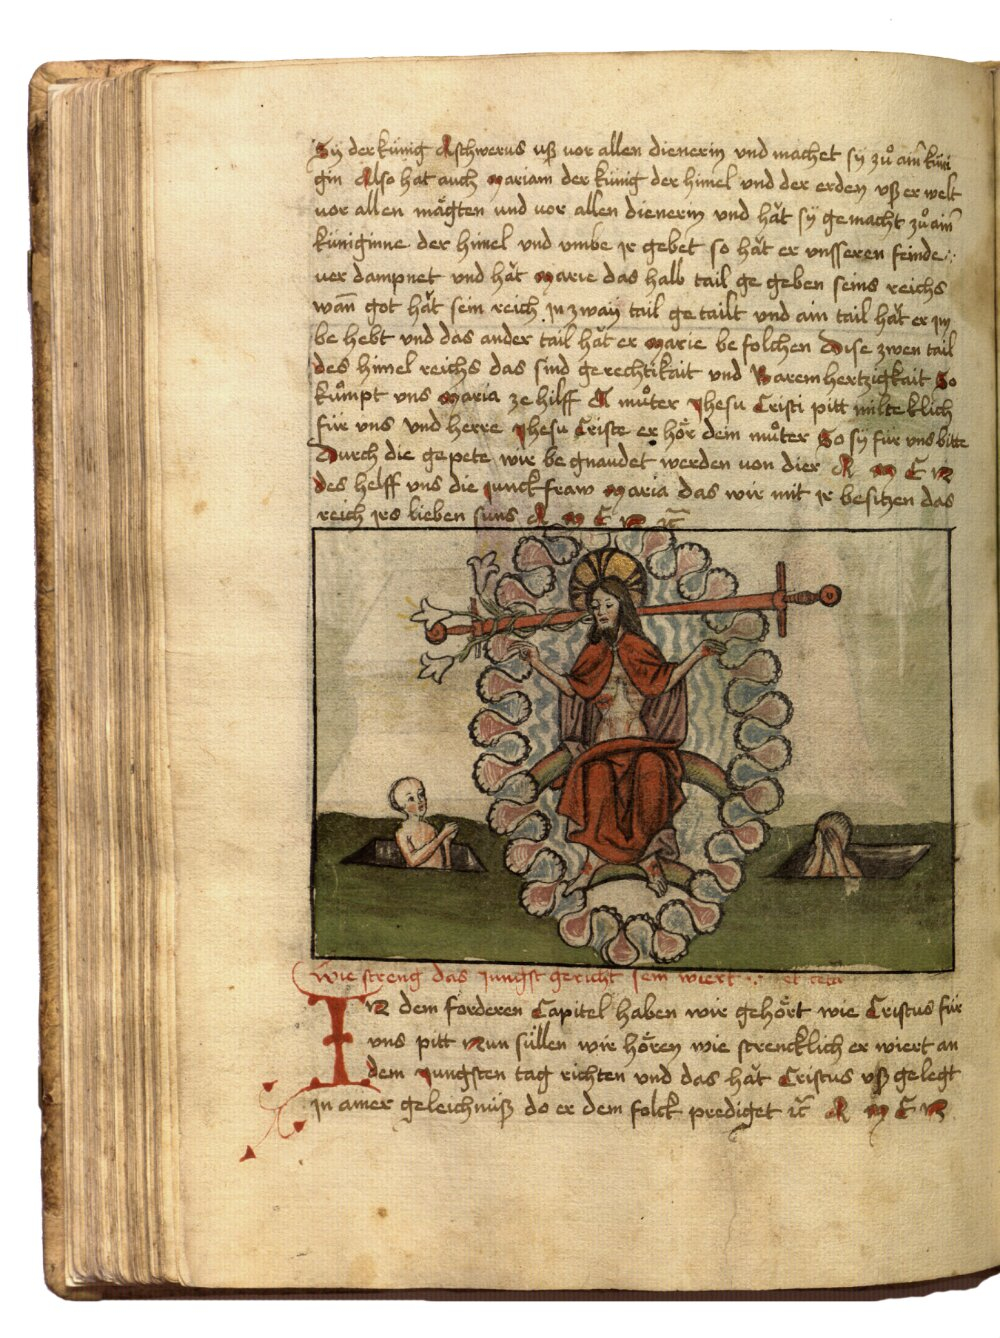 Sy der künig Aschwerus uß vor allen dienerin vnd machet sy zů aim küni
gin Also hat auch Mariam der künig der himel vnd der erden vß er welt
vor allen mägten vnd vor allen dienerin vnd hät sy gemacht zů aim
küniginne der himel vnd vmbe jr gebet so hät er vnsseren feinde
ver dampnet vnd hät Marie das halb tail ge geben seins reichs
wan̄ got hät sein reich jn zway tail ge tailt vnd ain tail hät er jm
be hebt vnd das ander tail hät er Marie be folchen Dise zwen tail
des himel reichs das sind gerechtikait vnd Barem hertzigkait So
kůmpt vns Maria ze hilff O můter Jhesu Cristi pitt milteklich
für vns vnd herre Jhesu Criste er hör dein můter So sy für vns bitte
Durch die gepete wir be gnaudet werden von dier A M E N
des helff vns die junckfraw Maria das wir mit jr besitzen das
reich jrs lieben suns A M E N ꝛc̄
Wie streng das jungst gericht sein wiert et cetera
IN dem forderen Capitel haben wir gehört wie Cristus für
vns pitt Nun süllen wir hören wie strencklich er wiert an
dem Jungsten tag richten vnd das hät Cristus vß gelegt
jn ainer geleichnüß do er dem folck prediget ꝛc̄ A M E N